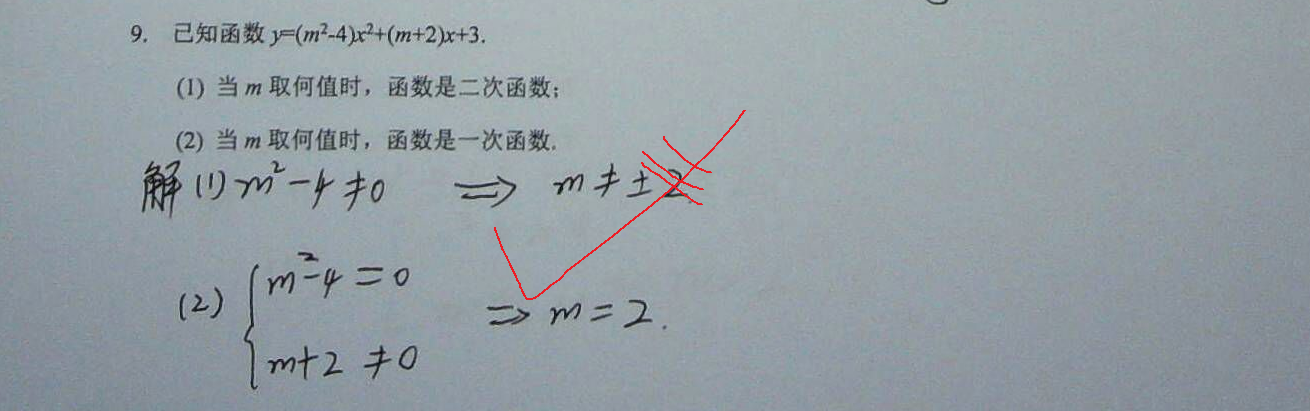 9. 已知函数 y=(m²-4)x²+(m+2)x+3.
(1) 当 m 取何值时，函数是二次函数；
(2) 当 m 取何值时，函数是一次函数.
解(1) m²-4≠0 ⇒ m≠±2.
(2) { m²-4=0
⇒ m=2.
m+2≠0